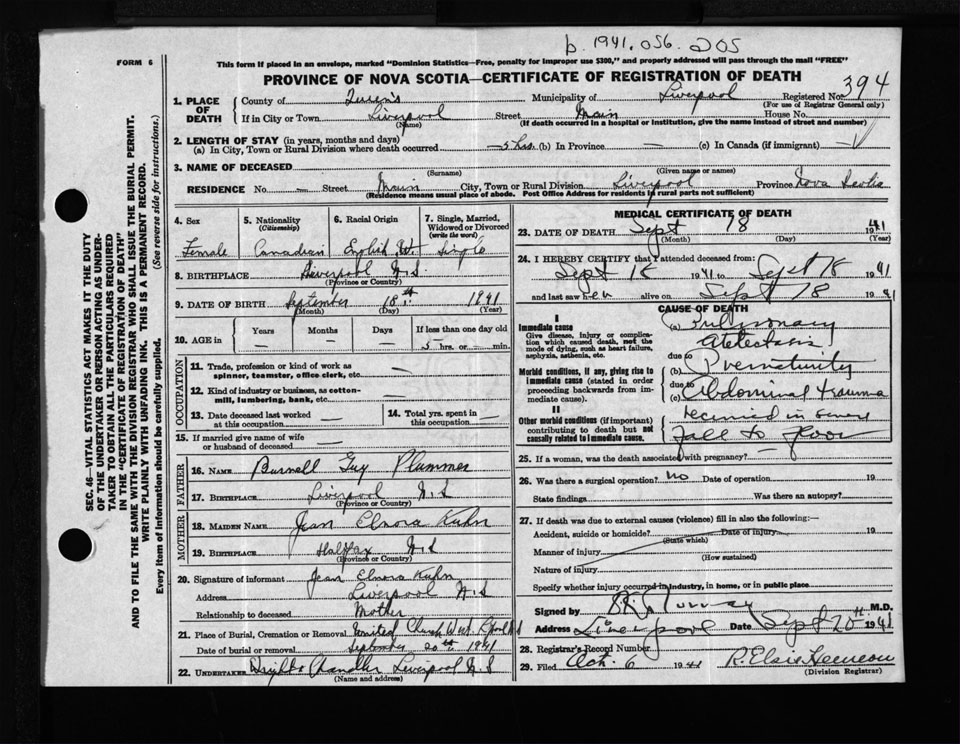 b. 1941. 056. 205
FORM 6
This form if placed in an envelope, marked "Dominion Statistics—Free, penalty for improper use $300," and properly addressed will pass through the mail "FREE"
PROVINCE OF NOVA SCOTIA—CERTIFICATE OF REGISTRATION OF DEATH
1. PLACE OF DEATH
County of Queen's Municipality of Liverpool Registered No. 394
(For use of Registrar General only)
If in City or Town Liverpool Street Main House No.
(Name) (If death occurred in a hospital or institution, give the name instead of street and number)
2. LENGTH OF STAY (in years, months and days)
(a) In City, Town or Rural Division where death occurred 5 hrs. (b) In Province — (c) In Canada (if immigrant)
3. NAME OF DECEASED
(Surname) (Given name or names)
RESIDENCE No. — Street Main City, Town or Rural Division Liverpool Province Nova Scotia
(Residence means usual place of abode. Post Office Address for residents in rural parts not sufficient)
4. Sex
Female
5. Nationality
(Citizenship)
Canadian
6. Racial Origin
English
7. Single, Married, Widowed or Divorced
(write the word)
Single
8. BIRTHPLACE Liverpool N.S.
(Province or Country)
9. DATE OF BIRTH September 18th 1941
(Month) (Day) (Year)
10. AGE in
Years Months Days If less than one day old
— — — 5 hrs. or min.
OCCUPATION
11. Trade, profession or kind of work as
spinner, teamster, office clerk, etc. —
12. Kind of industry or business, as cotton-
mill, lumbering, bank, etc. —
13. Date deceased last worked
at this occupation —
14. Total yrs. spent in
this occupation —
15. If married give name of wife
or husband of deceased —
FATHER
16. NAME Burnell Guy Plummer
17. BIRTHPLACE Liverpool N.S
(Province or Country)
MOTHER
18. MAIDEN NAME Jean Elnora Kuhn
19. BIRTHPLACE Halifax N.S
(Province or Country)
20. Signature of informant Jean Elnora Kuhn
Address Liverpool N.S
Relationship to deceased Mother
21. Place of Burial, Cremation or Removal United Church
Date of burial or removal September 20th 1941
22. UNDERTAKER Chandler Liverpool N.S
(Name and address)
MEDICAL CERTIFICATE OF DEATH
23. DATE OF DEATH Sept 18 1941
(Month) (Day) (Year)
24. I HEREBY CERTIFY that I attended deceased from:
Sept 18 1941 to Sept 18 1941
and last saw her alive on Sept 18 1941
CAUSE OF DEATH
I
Immediate cause
Give disease, injury or complica-
tion which caused death, not the
mode of dying, such as heart failure,
asphyxia, asthenia, etc.
(a) Pulmonary
Atelectasis
due to
Morbid conditions, if any, giving rise to
immediate cause (stated in order
proceeding backwards from im-
mediate cause).
(b) Prematurity
due to
(c) Abdominal trauma
II
Other morbid conditions (if important)
contributing to death but not
causally related to immediate cause.
received in severe
fall to floor
25. If a woman, was the death associated with pregnancy? —
26. Was there a surgical operation? no Date of operation 19
State findings Was there an autopsy?
27. If death was due to external causes (violence) fill in also the following:—
Accident, suicide or homicide? Date of injury 19
(State which)
Manner of injury
(How sustained)
Nature of injury
Specify whether injury occurred in industry, in home, or in public place
Signed by M.D.
Address Liverpool Date Sept 20th 1941
28. Registrar's Record Number
29. Filed Oct. 6 1941 R. Elsie
(Division Registrar)
SEC. 46—VITAL STATISTICS ACT MAKES IT THE DUTY
OF THE UNDERTAKER OR PERSON ACTING AS UNDER-
TAKER TO OBTAIN ALL THE PARTICULARS REQUIRED
IN THE "CERTIFICATE OF REGISTRATION OF DEATH"
AND TO FILE THE SAME WITH THE DIVISION REGISTRAR WHO SHALL ISSUE THE BURIAL PERMIT.
WRITE PLAINLY WITH UNFADING INK. THIS IS A PERMANENT RECORD.
Every item of Information should be carefully supplied. (See reverse side for instructions.)